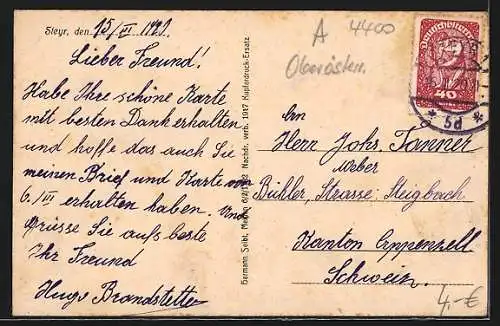 Steyr, den 15/III 1920.
Lieber Freund!
Habe Ihre schöne Karte
mit besten Dank erhalten
und hoffe das auch Sie
meinen Brief und Karte vom
6./III erhalten haben. Und
Grüsse Sie aufs beste
Ihr Freund
Hugo Brandstetter
Hermann Seibt, Meißen 1917 Kupferdruck-Ersatz
Nachdr. verb.
A 4400
Oberösterr.
Deutschösterreich
40
* 5d *
An
Herrn Johs. Tanner
Weber
Bühler, Strasse: Steigbach
Kanton Appenzell
Schweiz.
4,-€